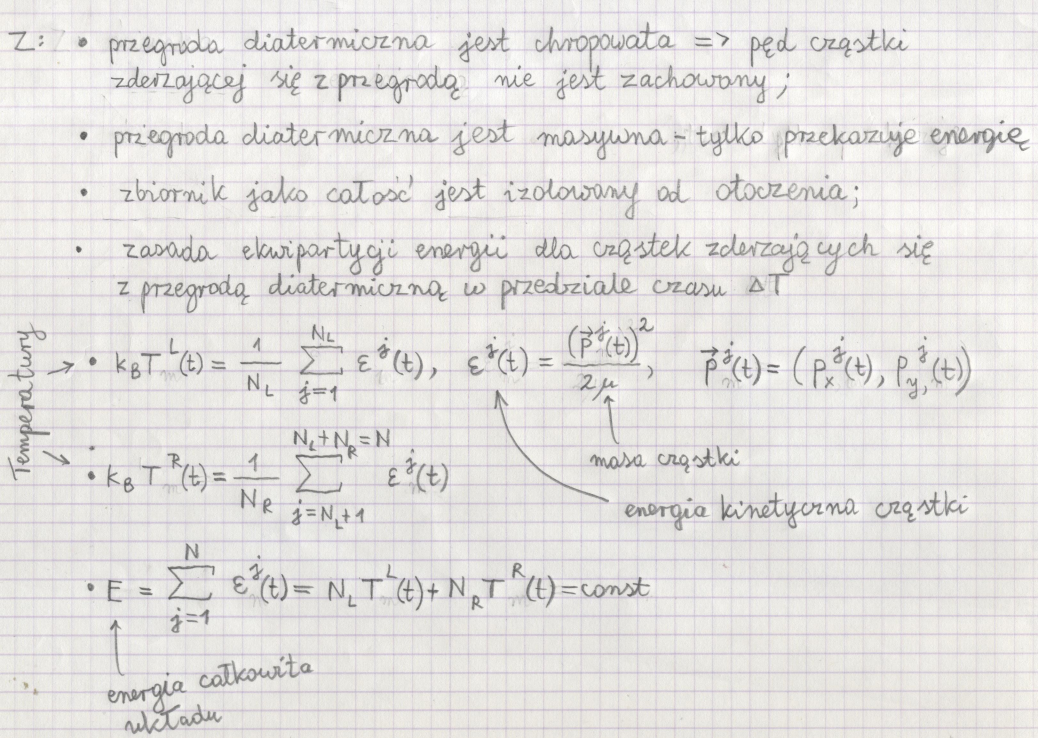 Z: • przegroda diatermiczna jest chropowata => pęd cząstki
zderzającej się z przegrodą nie jest zachowany;
• przegroda diatermiczna jest masywna - tylko przekazuje energię
• zbiornik jako całość jest izolowany od otoczenia;
• zasada ekwipartycji energii dla cząstek zderzających się
z przegrodą diatermiczną w przedziale czasu ΔT
Temperatury
• k_B T^L(t) = 1/N_L ∑_{j=1}^{N_L} ε^j(t), ε^j(t) = (p⃗^j(t))^2 / 2μ, p⃗^j(t) = (p_x^j(t), p_y^j(t))
masa cząstki
• k_B T^R(t) = 1/N_R ∑_{j=N_L+1}^{N_L+N_R=N} ε^j(t)
energia kinetyczna cząstki
• E = ∑_{j=1}^{N} ε^j(t) = N_L T^L(t) + N_R T^R(t) = const
energia całkowita
układu